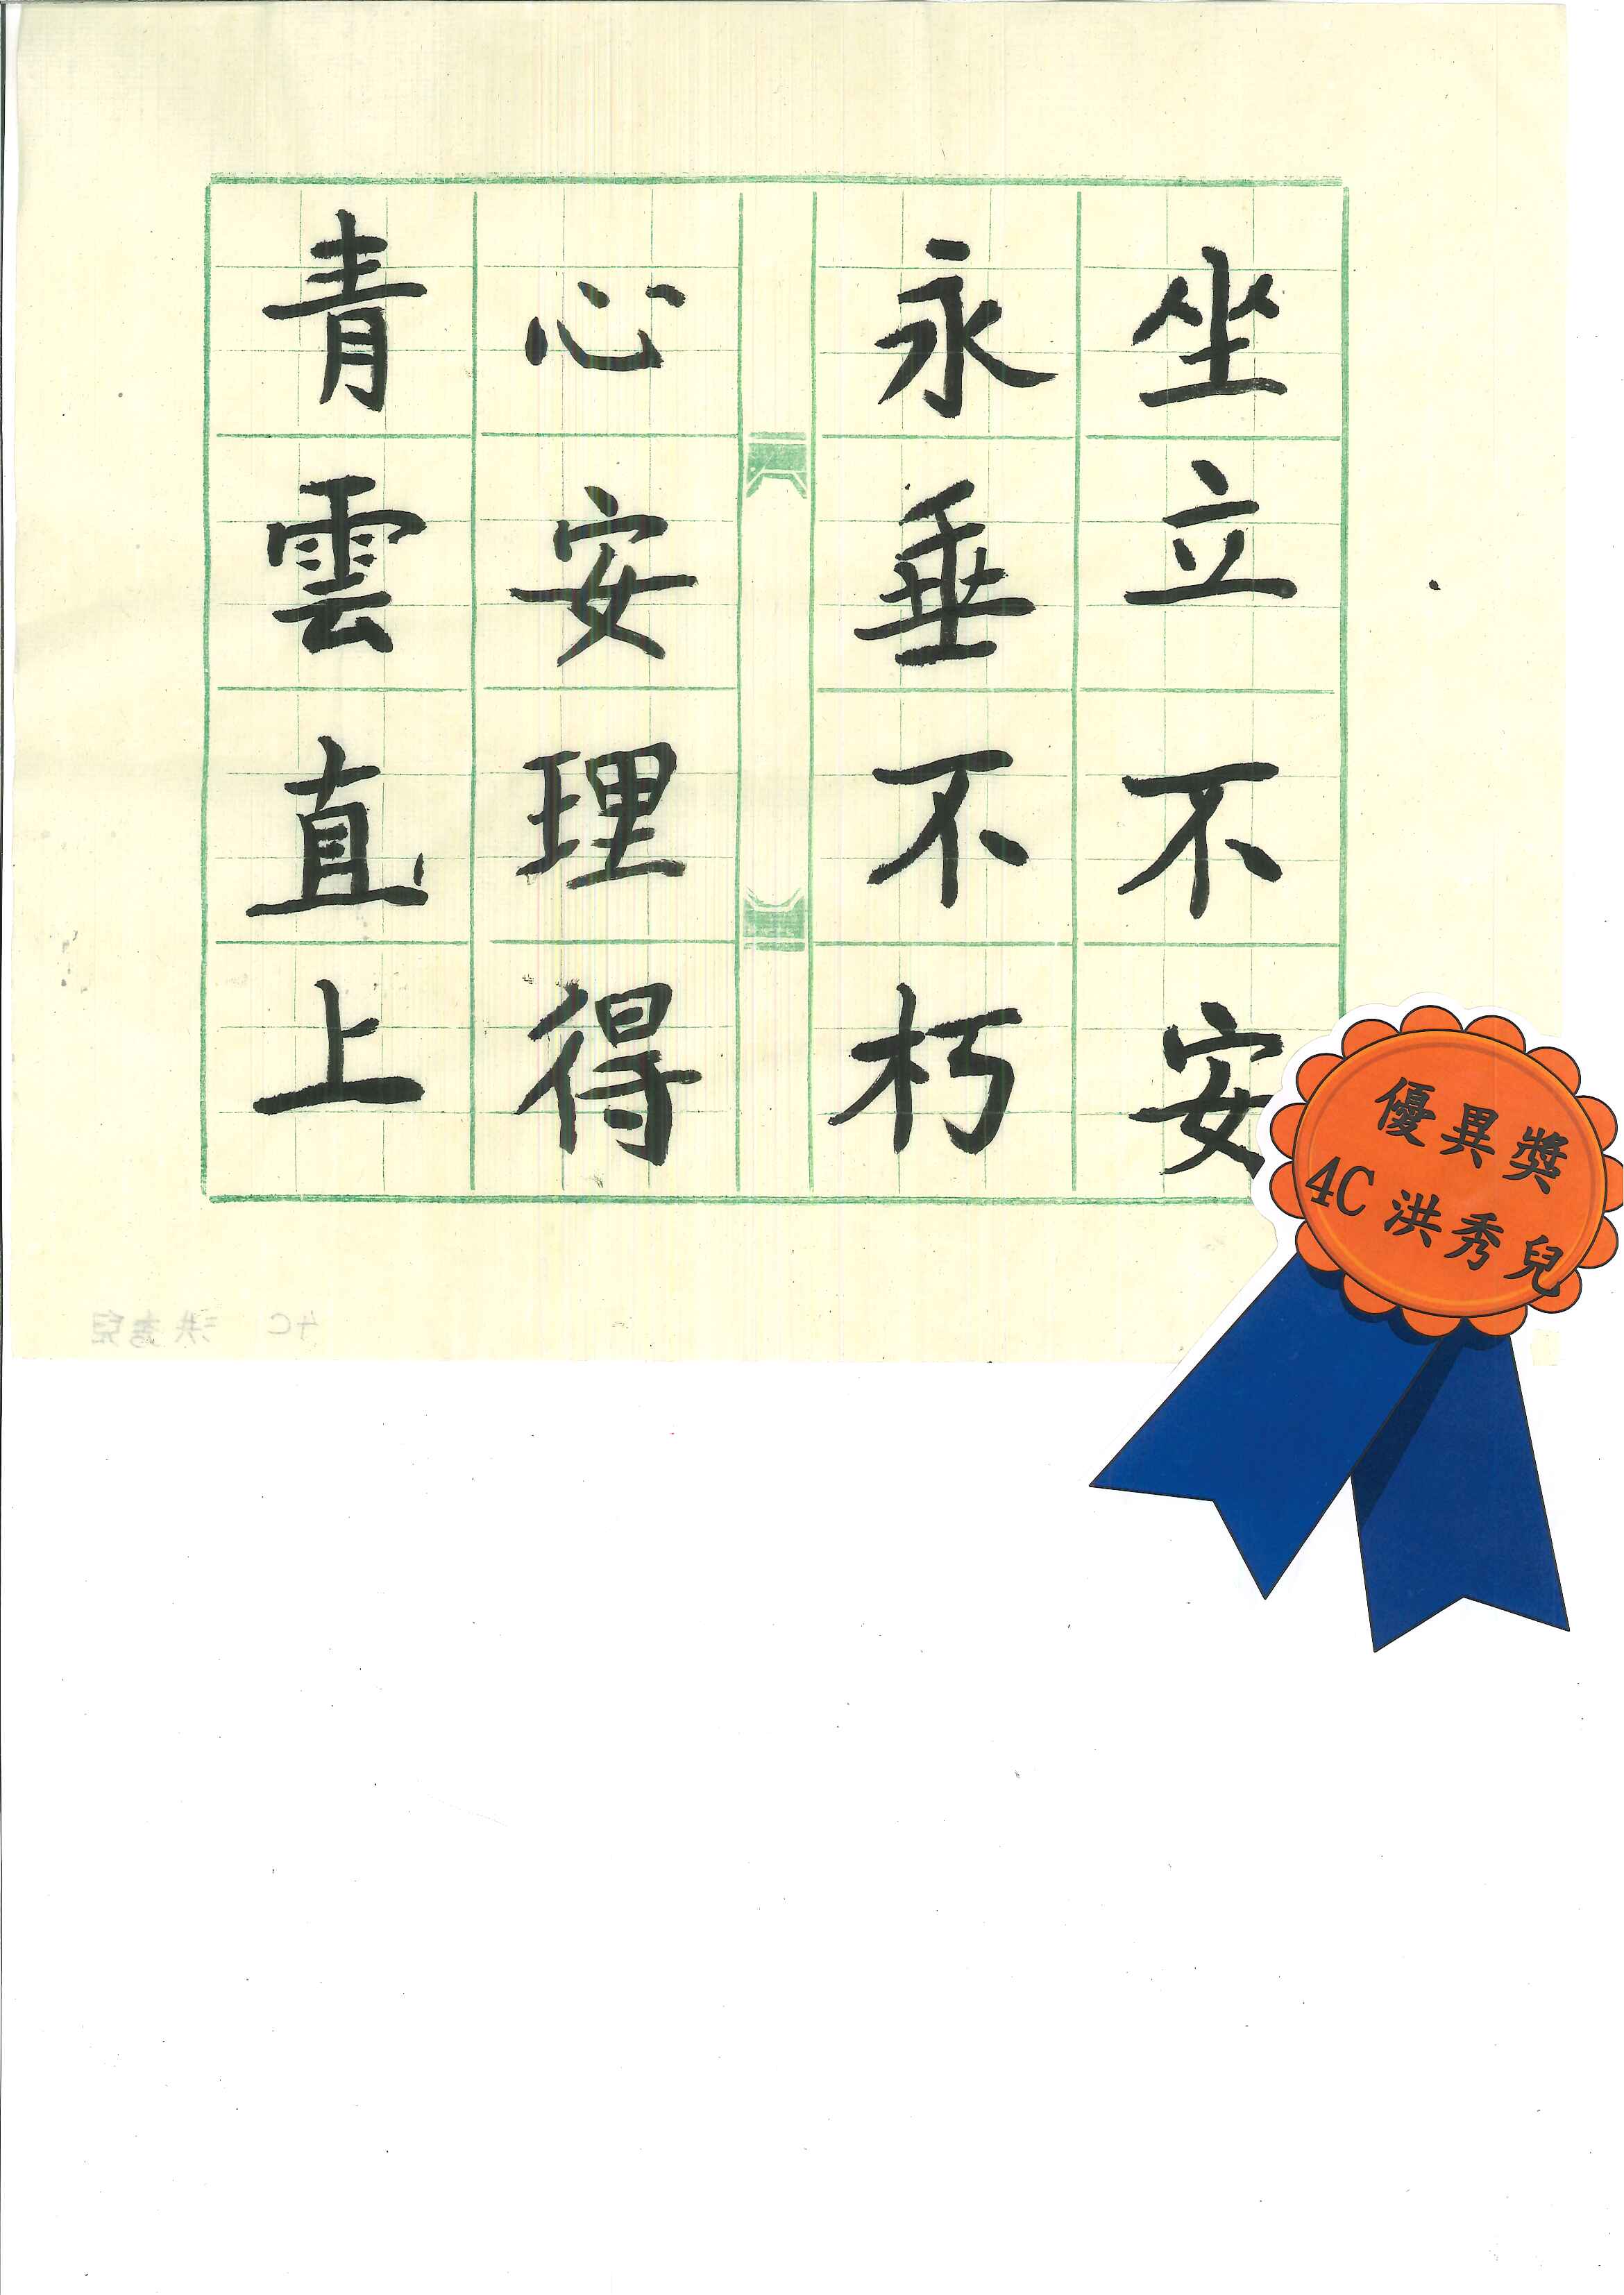 坐立不安
永垂不朽
心安理得
青雲直上
優異獎
4C 洪秀兒
4C 洪秀兒